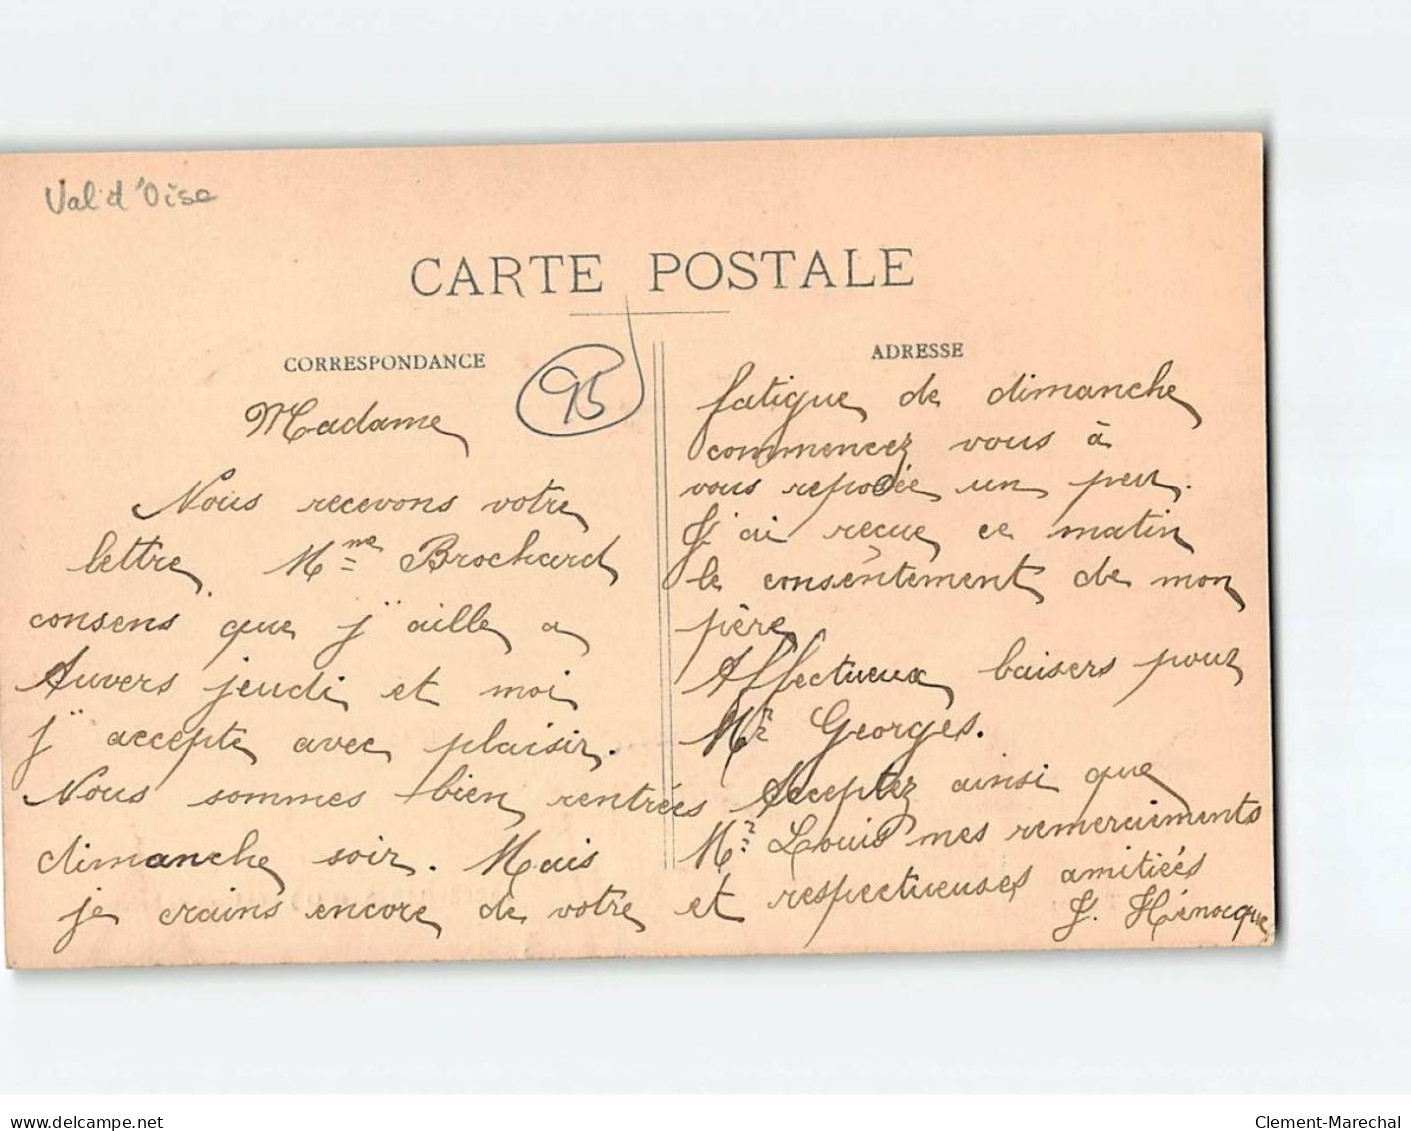 Val d'Oise
CARTE POSTALE
CORRESPONDANCE
95
Madame
Nous recevons votre
lettre Mme Brochard
consens que j'aille a
Auvers jeudi et moi
j'accepte avec plaisir.
Nous sommes bien rentrées
dimanche soir. Mais
je crains encore de votre
ADRESSE
fatigue de dimanche
commencez vous à
vous reposée un peu.
J'ai recue ce matin
le consentement de mon
père
Affectueux baisers pour
Mr Georges.
Acceptez ainsi que
Mr Louis mes remerciements
et respectueuses amitiées
J. Hénocque
delcampe.net
Clement-Marechal